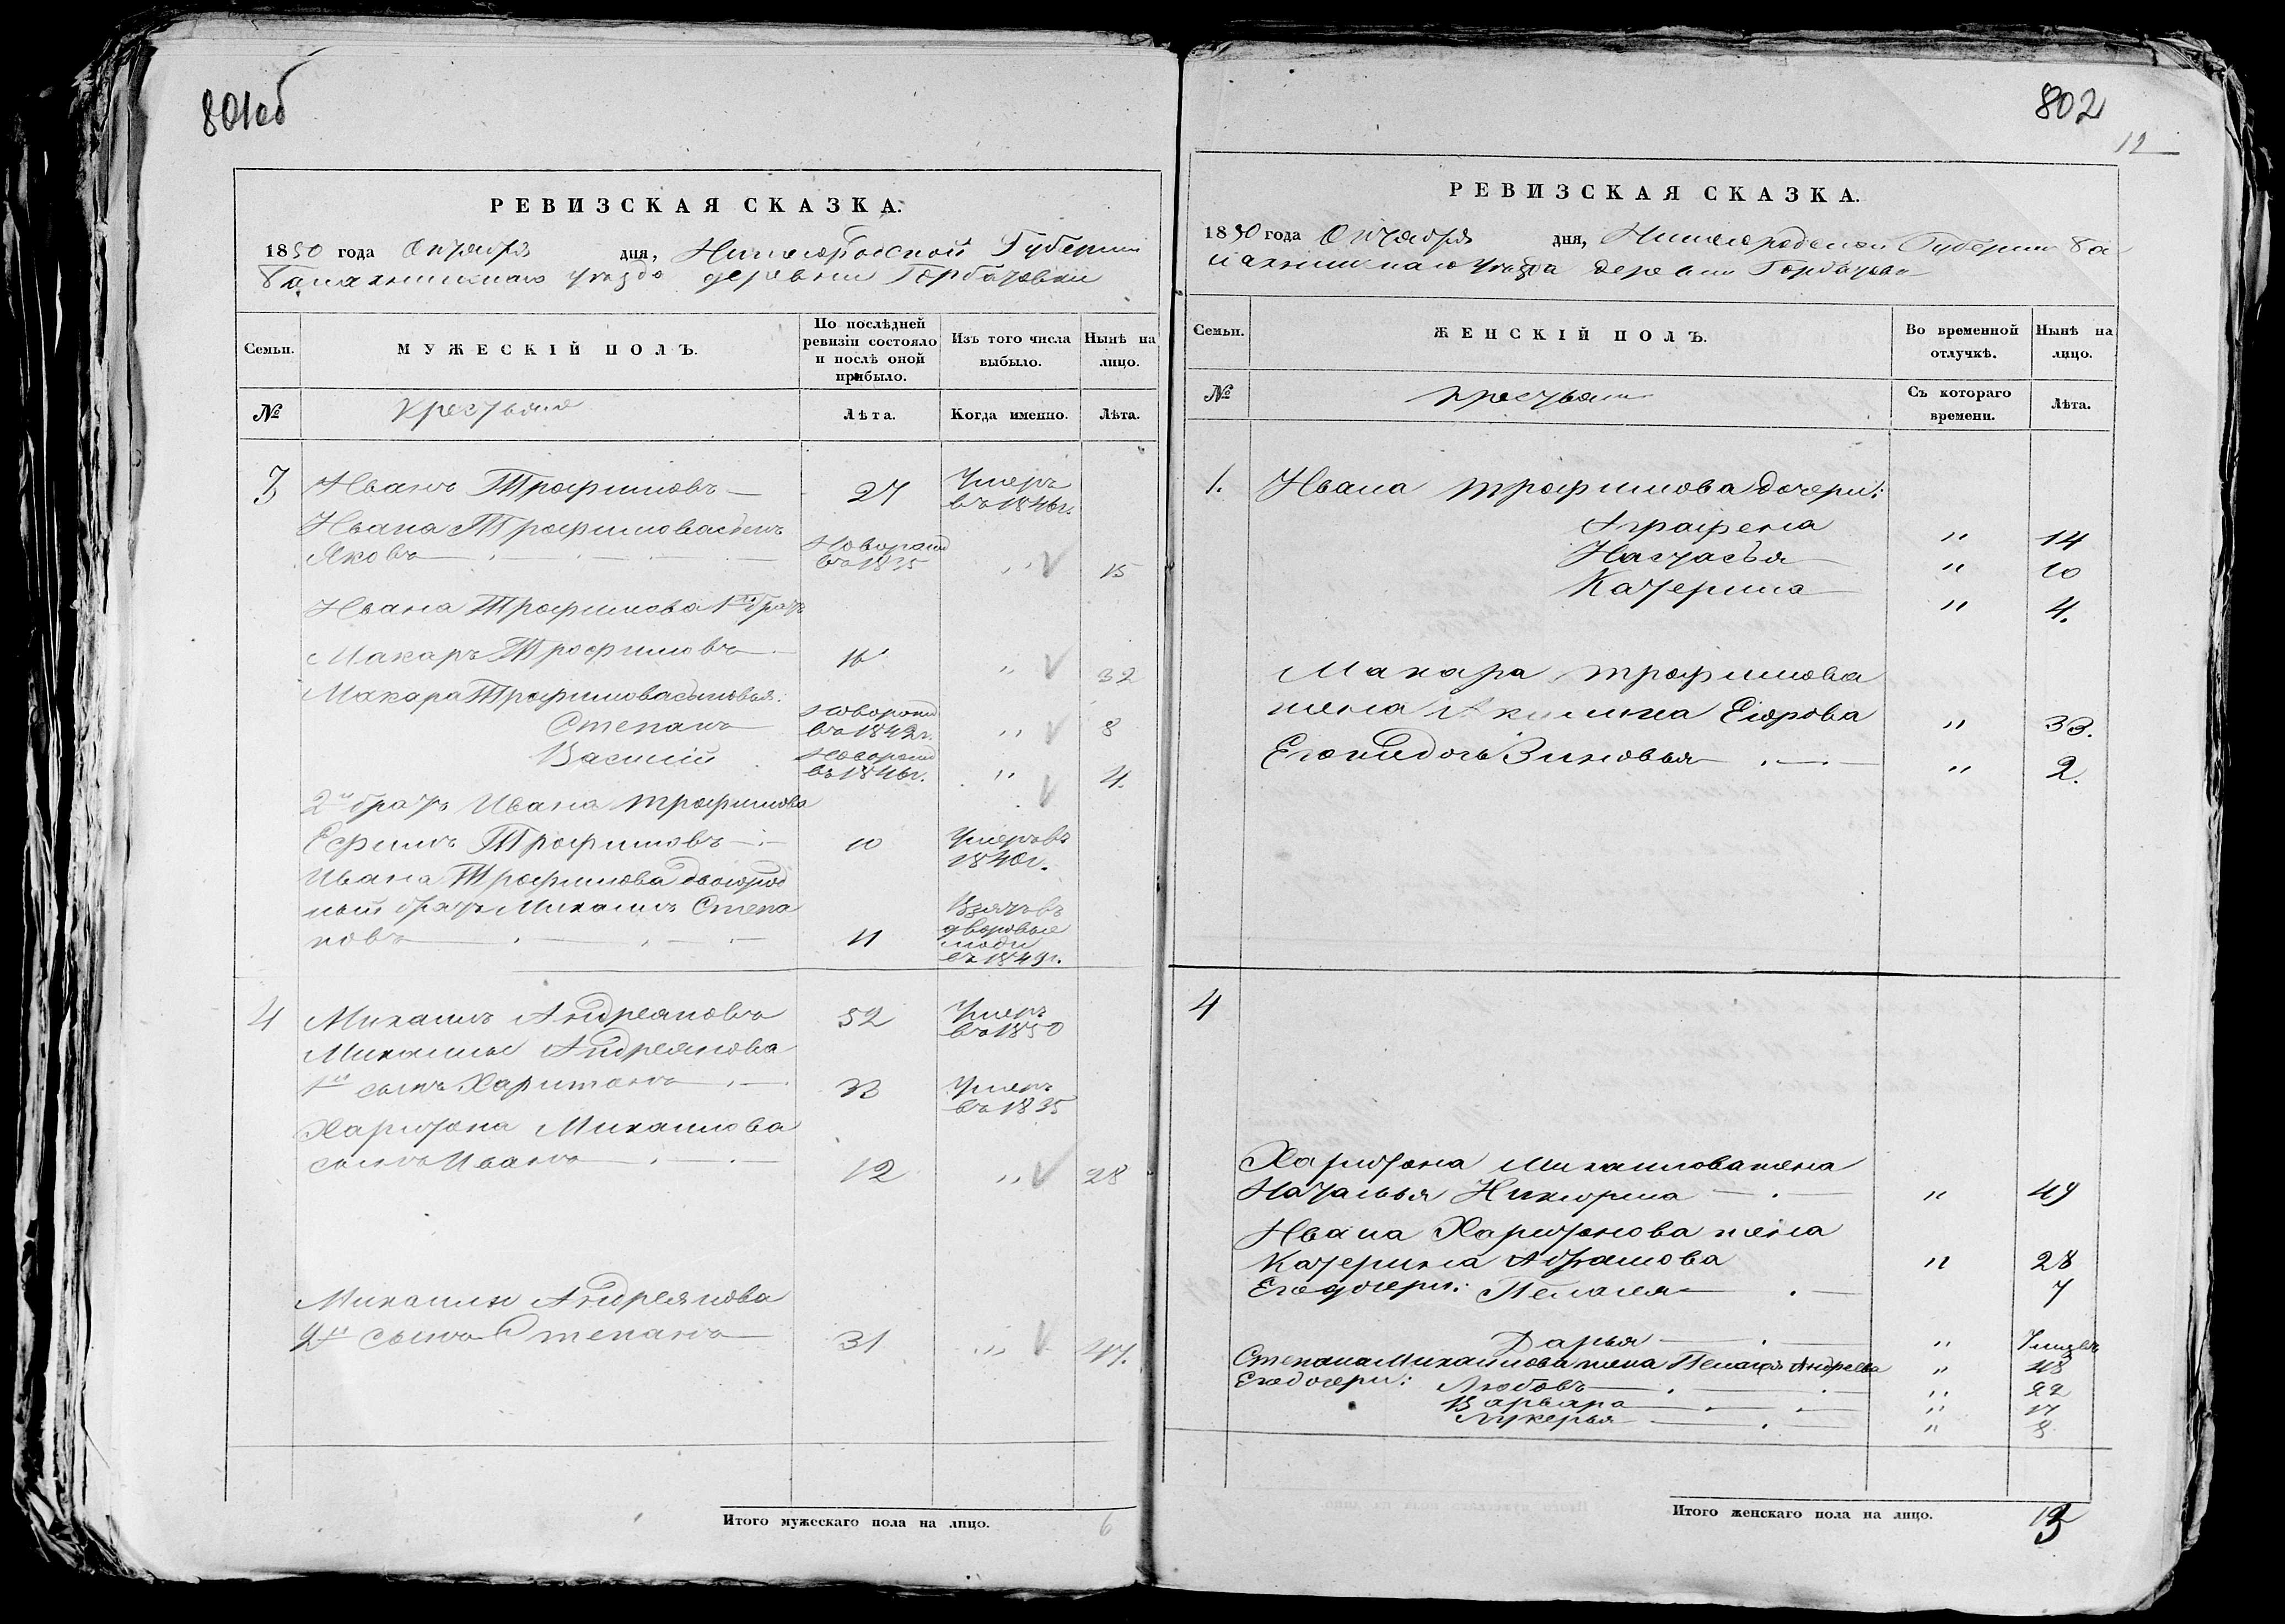 801об
РЕВИЗСКАЯ СКАЗКА.
1850 года Октября дня, Нижегородской Губернии
Балахнинскаго уезда деревни Горбатовки
Семьи.
МУЖЕСКІЙ ПОЛЪ.
По послѣдней ревизіи состояло и послѣ оной прибыло.
Изъ того числа выбыло.
Нынѣ на лицо.
№
Крестьяне
Лѣта.
Когда именно.
Лѣта.
3 Иванъ Трофимовъ 27 Умеръ въ 1846г.
Ивана Трофимова сынъ
Яковъ Новорожд въ 1835 " 15
Ивана Трофимова 1й братъ
Макаръ Трофимовъ 16 " 32
Макара Трофимова сыновья:
Степанъ Новорожд въ 1842г. " 8
Василій Новорожд въ 1846г. " 4.
2й братъ Ивана Трофимова
Ефимъ Трофимовъ 10 Умеръ въ 1840г.
Ивана Трофимова двоюрод
ный братъ Михаилъ Степа
новъ 11 Взятъ въ дворовые люди въ 1849г.
4 Михаилъ Андреяновъ 52 Умеръ въ 1850
Михаилы Андреянова
1й сынъ Харитонъ 33 Умеръ въ 1835
Харитона Михаилова
сынъ Иванъ 12 " 28
Михаилы Андреянова
2й сынъ Степанъ 31 " 47.
Итого мужескаго пола на лицо. 6
802
12
РЕВИЗСКАЯ СКАЗКА.
1850 года Октября дня, Нижегородской Губернии Ба
лахнинскаго уезда деревни Горбатовки
Семьи.
ЖЕНСКІЙ ПОЛЪ.
Во временной отлучкѣ.
Нынѣ на лицо.
№
Крестьяне
Съ котораго времени.
Лѣта.
1. Ивана Трофимова дочери:
Аграфена " 14
Настасья " 10
Катерина " 4.
Макара Трофимова
жена Акилина Егорова " 33.
Его же дочь Зиновья " 2.
4
Харитона Михаилова жена
Наталья Никифорова " 49
Ивана Харитонова жена
Катерина Абрамова " 28
Его дочери: Пелагея 7
Дарья " 7 мцвъ
Степана Михаилова жена Пелагея Андреева " 48
Его дочери: Любовь " 22
Варвара " 17
Лукерья " 8
Итого женскаго пола на лицо. 13